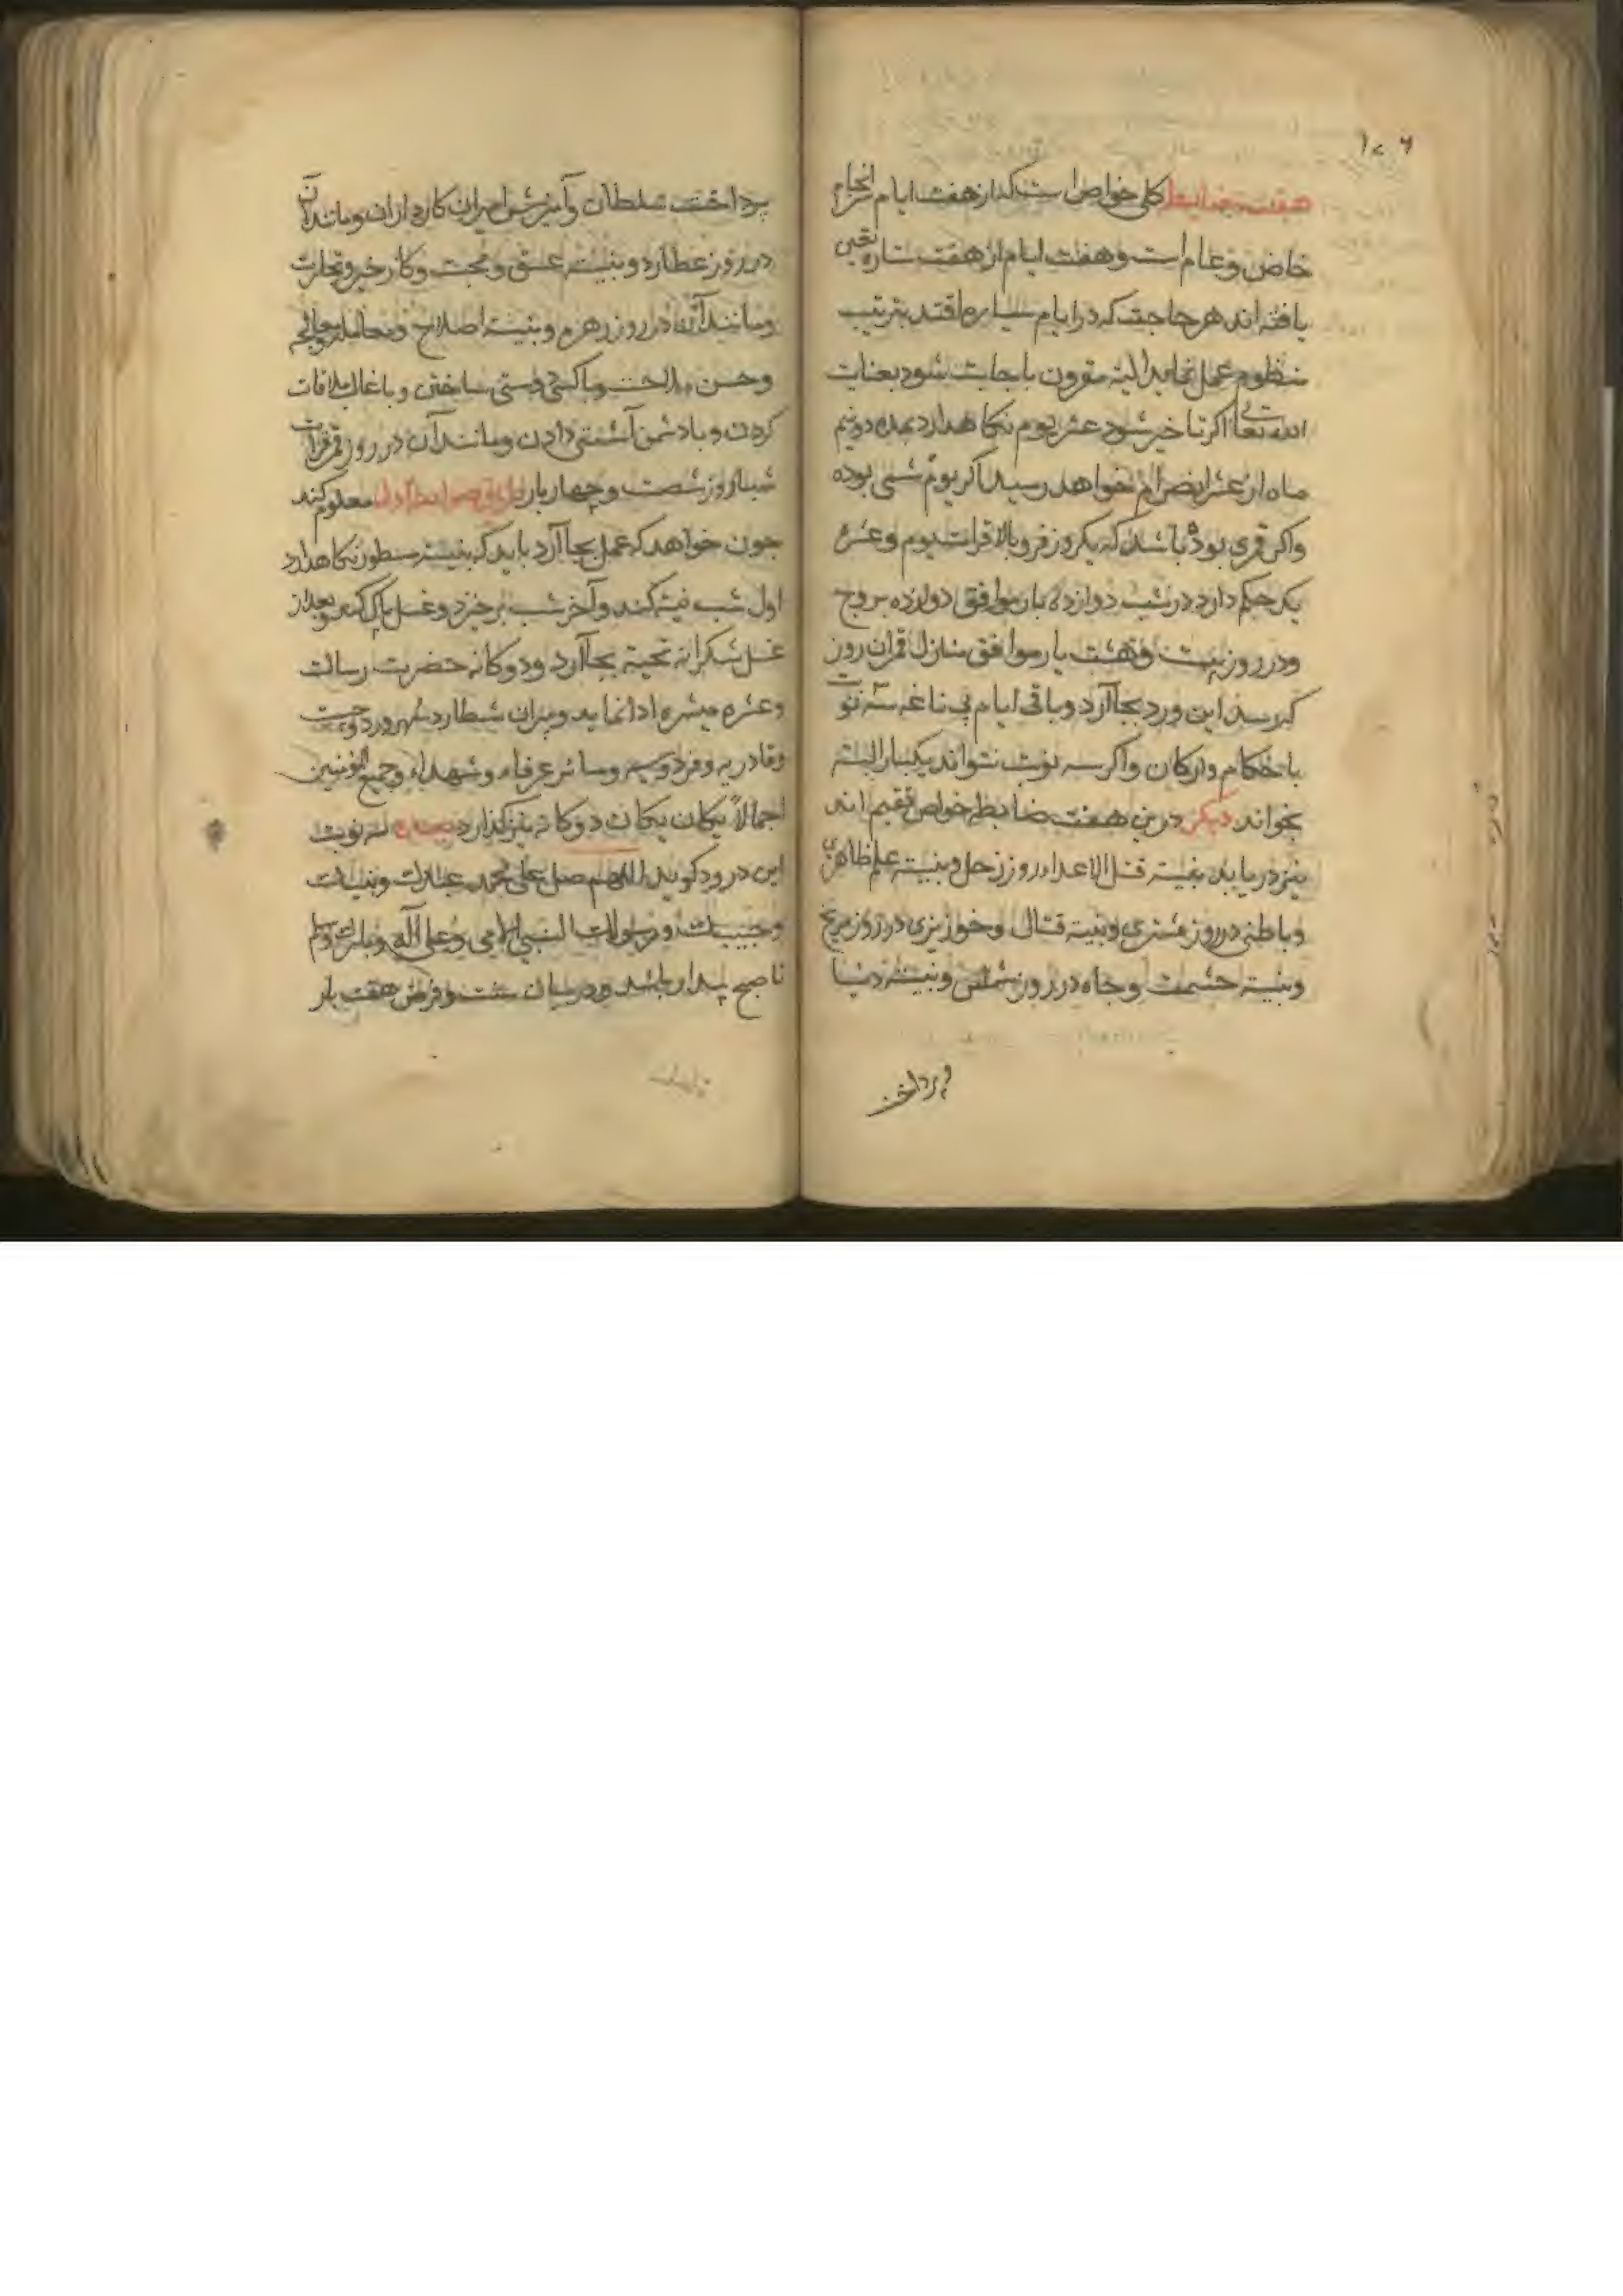 ۱۰۶
هفت ضابط کلی خواص است که از هفت ایام سرانجام
خاص و عام است و هفت ایام از هفت ستاره تعین
یافته اند هر حاجت که در ایام سیاره افتد بترتیب
منظوم عمل نماید البته مقرون باجابت شود بعنایت
الله تعالی اکر تاخیر شود عشر یوم نکاهدارد بمده دو نیم
ماه از عشر انصرام نخواهد رسید اکر یوم شمسی بوده
واکر قمری بوده باشد که یکروز فرو بالا قرات یوم وعشره
یک حکم دارد در شب دوازده بار موافق دوازده بروج
ودر روز بیست وهشت بار موافق منازل قمر ان روز
که رسد این ورد بجا آرد وباقی ایام بی ناغه سه نوبت
باحکام وارکان واکر سه نوبت نتواند یکبار البته
بخواند دیکر درین هفت ضابط خواص تقیم اند
نیز دریابد بنیته قتل الاعدا در روز زحل وبنیته علم ظاهری
وباطنی در روز مشتری وبنیته قتال وخونریزی در روز مریخ
وبنیته حشمت وجاه در روز شمس وبنیته دنیا
پرداختن
پرداخت سلطان وآمیزش امیران کارداران ومانند آن
در روز عطارد وبنیته عشق ومحبت وکار خیر وتجارت
ومانند آن در روز زهره وبنیته اصلاح
وحسن ملاحت وباکسی دوستی ساختن وباغایب ملاقات
کردن وبادشمن آشتی دادن ومانند آن در روز قمر قرات
شباروز شصت وچهار بار معلوم کند
چون خواهد که عمل بجا آرد باید که بنیته مسطور نکاهدارد
اول شب نیته کند وآخر شب برخیزد وغسل پاک کند وبعد از
غسل شکرانه تحیته بجا آرد ودوکانه حضرت رسالت
وعشره مبشره ادا نماید وپیران شطار سهرورد وچشت
وقادریه وفردوسیه وسائر عرفاء وشهداء وجمیع المؤمنین
اجمالاً یکان یکان دوکانه نیز کذارد سه نوبت
این درود کوید اللهم صل علی محمد عبدک ونبیک
وحبیبک ورسولک النبی الامی وعلی آله وبارک وسلم
تا صبح بیدار باشد ودرمیان سنت وفرض هفت بار